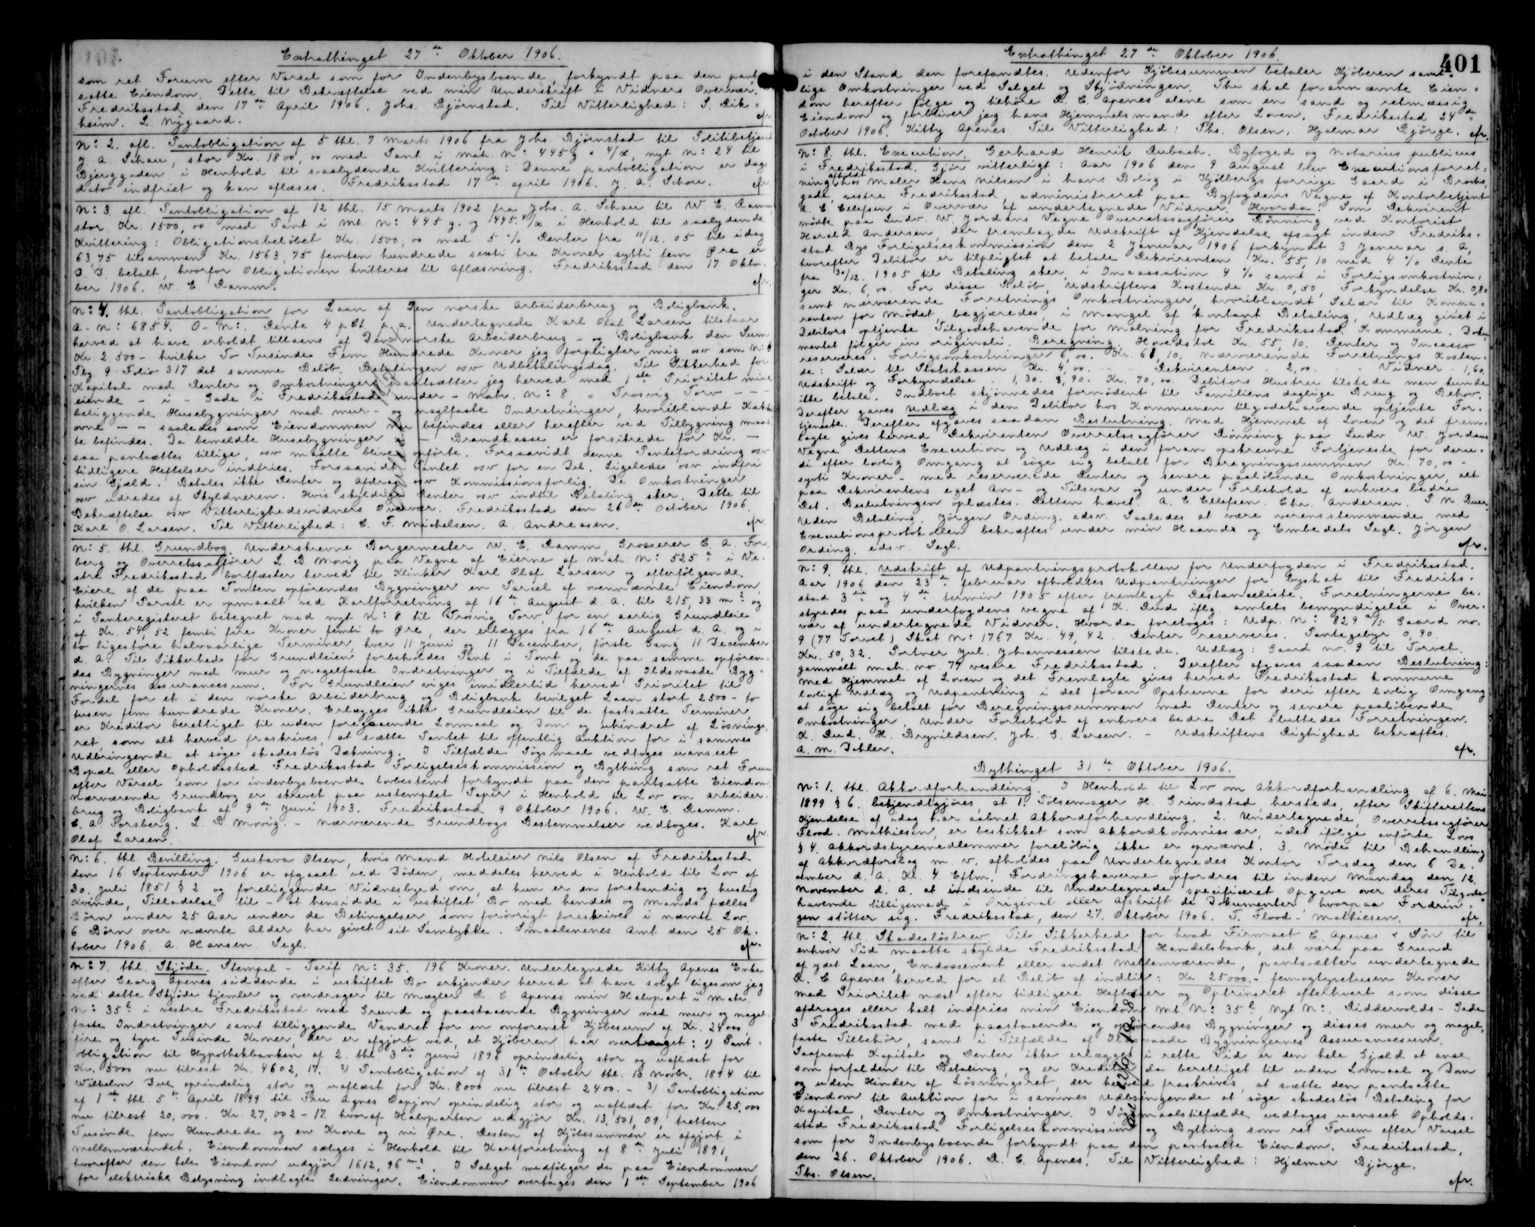 Extrathinget 27de Oktober 1906.
som ret Forum efter Varsel som for Indenbysboende, forkyndt paa den pant-
satte Eiendom. Dette til Bekræftelse ved min Underskrift i Vidners Overvær.
Fredriksstad den 17de April 1906. Johs. Bjørnstad. Til Vitterlighed: S. Rik-
heim. L. Nygaard. cfr.
N: 2. afl. Pantobligation af 5 thl. 7 Marts 1906 fra Johs Bjørnstad til Politibetjent
J. A. Schau, stor Kr. 1800,00 med Pant i mat. N: 445 g nyt N: 24 til
Bjerggaden i Henhold til saalydende Kvittering: Denne pantobligation er dags
dato indfriet og kan aflæses. Fredriksstad 17de april 1906. J. A. Schau. cfr.
N: 3. afl. Pantobligation af 12 thl. 15 marts 1902 fra Johs. A. Schau til W. C. Ramm
stor Kr. 1500,00 med Pant i Mt. N: 445 g. i Henhold til saalydende
Kvittering: Obligationsbeløbet Kr. 1500,00 med 5 % Renter fra 11/12. 05 til idag
63,75 tilsammen Kr. 1563,75 femten hundrede sexti tre Kroner sytti fem Øre er
D. D. betalt, hvorfor Obligationen kvitteres til Aflæsning. Fredriksstad den 17 Okto-
ber 1906. W. C. Ramm. cfr.
N: 4. thl. Pantobligation for Laan af Den norske Arbeiderbrug og Boligbank.
A - N: 6854. O - N: Rente 4 pCt. p. a. Undertegnede Karl Olaf Larsen tilstaar
herved at have erholdt tillaans af Den norske Arbeiderbrug - og Boligbank den Sum
Kr 2500 - hvilke To Tusinde Fem Hundrede Kroner jeg forpligter mig osv som N: 6
Tlg 9 Folio 317 det samme Beløb. Betalingen osv Udbetalingsdag. Til Sikkerhed for
Kapital med Renter og Omkostninger pantsætter jeg herved med 1ste Prioritet mine
eiende - i - Gade i Fredriksstad under - Matr. N: 8 Trosvig Torv -
beliggende Husebygninger med mur - og nagelfaste Indretninger, hvoriblandt Kakkel-
ovne - saaledes som Eiendommen nu befindes eller herefter ved Tilbygning maat-
te befindes. De bemeldte Husebygninger - Brandkasse er forsikrede for Kr. -
saa pantsættes tillige, osv maatte blive opførte. Forsaavidt denne Pantefordring osv
tidligere Heftelser indfries. Forsaavidt Pantet osv for en Del. Ligeledes osv indfri
sin Gjæld. Betales ikke Renter og Afdrag osv Kommissionsforlig. De Omkostninger
osv udredes af Skyldneren. Hvis skyldige Renter osv indtil Betaling sker. Dette til
Bekræftelse osv Vitterlighedsvidners Overvær. Fredriksstad den 26de October 1906.
Karl O. Larsen. Til Vitterlighed: C. F. Michelsen. A. Andreasen. cfr.
N: 5. thl. Grundbog. Underskrevne Borgermester W. C. Ramm, Grosserer C. A. Fors-
berg og Overretssagfører L. B Movig paa Vegne af Eierne af mat. N: 525 i Ve-
stre Fredriksstad bortfæster herved til Klinker Karl Olaf Larsen og efterfølgende
Eiere af de paa Tomten opførendes Bygninger en Parcel af ovennævnte Eiendom,
hvilken Parcel er opmaalt ved Kartforretning af 16de August d. A. til 215,33 m2 og
i Panteregisteret betegnet med nyt N: 8 til Trosvig Torv, for en aarlig Grundleie
af Kr. 54,52 femti fire Kroner femti to Øre, der erlægges fra 16de August d. A. og i
to ligestore halvaarlige Terminer, hver 11 Juni og 11 December, første Gang 11 December
d. A. Til Sikkerhed for Grundleien forbeholdes Pant i Tomt og de paa samme opføren-
des Bygninger med mur og nagelfaste Indretninger og i Tilfælde af Ildsvaade Byg-
ningernes Assurancesum. For Grundleien viges imidlertid herved Prioritet til
Fordel for et i den norske Arbeiderbrug og Boligbank bevilget Laan stort 2500 - to
tusen fem hundrede Kroner. Erlægges ikke Grundleien til de fastsatte Terminer
er Kreditor berettiget til uden foregaaende Lovmaal og Dom og uhindret af Løsnings-
ret, som alt herved fraskrives, at sætte Pantet til offentlig Auktion for i sammes
Udbringende at søge skadesløs Dækning. I Tilfælde Søgsmaal vedtages uanseet
Bopæl eller Opholdssted Fredriksstad Forligelseskommission og Bything som ret Forum
efter Varsel som for indenbysboende, lovbestemt forkyndt paa den pantsatte Eiendom.
Nærværende Grundbog er skrevet paa ustemplet Papir i Henhold til Lov om Arbeider-
brug og Boligbank af 9de Juni 1903. Fredriksstad 9 Oktober 1906. W. C. Ramm.
C. A. Forsberg. L. B Movig. - Nærværende Grundbogs Bestemmelser vedtages. Karl
Olaf Larsen. cfr.
N: 6. thl. Bevilling. Gustava Olsen, hvis mand Hoteleier Nils Olsen af Fredriksstad
den 16 September 1906 er afgaaet ved Døden, meddeles herved i Henhold til Lov af
30. Juli 1851 § 2 og foreliggende Vidnesbyrd om, at hun er en forstandig og huslig
Kvinde, Tilladelse til at hensidde i uskiftet Bo med hendes og Mands fælles
Børn under 25 Aar under de Betingelser, som forøvrigt foreskrives i nævnte Lov.
6 Børn over nævnte Alder har givet sit Samtykke. Smaalenenes Amt den 25 Ok-
tober 1906. A. Hansen. Segl. cfr.
N: 7. thl. Skjøde. Stempel - Tarif N: 35. 196 Kroner. Undertegnede Kitty Apenes Enke
efter Georg Apenes siddende i uskiftet Bo erkjender herved at have solgt ligesom jeg
ved dette Skjøde hjemler og overdrager til Mægler R. C. Apenes min Halvpart i matr.
N: 35 i vestre Fredriksstad med Grund og paastaaende Bygninger med mur og nagel-
faste Indretninger samt tilliggende Vandret for en omforenet Kjøbesum af Kr. 24000,
fire og tyve Tusinde Kroner, der er afgjort ved, at Kjøberen har overtaget: 1) Pant-
obligation til Hypothekbanken af 2. thl. 3de Juni 1892 oprindelig stor og uaflæst for
Kr. 5000 nu tilrest Kr. 4602,17. 2) Pantobligation af 31te October thl. 10 Novbr. 1894 til
Wilhelm Due, oprindelig stor og uaflæst for Kr. 8000 nu tilrest 2400. - 3) Pantobligation
af 1te thl. 5te April 1899 til Fru Agnes Sapjon oprindelig stor og uaflæst for Kr 25,000
nu tilrest 20,000. Kr. 27,002 - 17. hvoraf Halvparten udgjør Kr. 13,501,09, tretten
Tusinde fem Hundrede og en Krone og ni Øre. Resten af Kjøbesummen er afgjort i
mellemværendet. Eiendommen sælges i Henhold til Kartforretning af 8de Juli 1891,
hvorefter den hele Eiendom udgjør 1612,96 m2. I Salget medfølger de paa Eiendommen
for elektriske Belysning indlagte Ledninger. Eiendommen overtages den 1ste September 1906
Extrathinget 27de Oktober 1906.
401
i den Stand den forefandtes. Udenfor Kjøbesummen betaler Kjøberen samt-
lige Omkostninger ved Salget og Skjødningen. Thi skal forannævnte Eien-
dom herefter følge og tilhøre R. C. Apenes alene som en sand og retmæssig
Eiendom og forbliver jeg hans Hjemmelsmand efter Loven. Fredriksstad 24de
October 1906. Kitty Apenes. Til Vitterlighed: Ths. Olsen. Hjalmar Bjørge. cfr.
N: 8. thl. Execution. Gerhard Henrik Aubach. Byfoged og Notarius publicus
i Fredriksstad. Gjør vitterligt: Aar 1906 den 9 August blev Executionsforret-
ning afholdt hos Maler Hans Nilsen i hans Bolig i Kjølbergs forrige Gaard i Brochs
gade, vestre Fredriksstad, administreret paa Byfogdens Vegne af Kontorbetjent
A. C. Ellefsen i Overvær af undertegnede Vidner. Hvorda: Som Rekvirent
mødte paa Ludv. W. Jordans Vegne Overretssagfører Rønning ved Kontorist
Harald Andersen der fremlagde Udskrift af Kjendelse afsagt inden Fredriks-
stad Bys Forligelseskommission den 2 Januar 1906 forkyndt 3 Januar s. A,
hvorefter Debitor er tilpligtet at betale Rekvirenten Kr. 55,10 med 4 % Rente
fra 30/12. 1905 til Betaling sker, i Incassation 4 % samt i Forligsomkostnin-
ger Kr. 6,00. For disse Beløb, Udskriftens Kostende Kr. 0,50, Forkyndelse Kr. 0,80
samt nærværende Forretnings Omkostninger, hvoriblandt Salær til Konci-
renten for Mødet, begjæredes i Mangel af kontant Betaling, Udlæg givet i
Debitors optjente Tilgodehavende for Malning for Fredriksstad Kommune. Doku-
mentet følger in originali. Beregning: Hovedstol Kr. 55,10. Renter og Incasso
reserveres. Forligsomkostninger 6,00. Kr. 61,10. Nærværende Forretnings Kosten-
de: Salær til Statskassen Kr. 4,00. Rekvirenten - 2,00. - Vidner - 1,60.
Udskrift og Forkyndelse 1,30. 8,90. Kr. 70,00. Debitors Hustru tilstede men kunde
ikke betale. Indboet skjønnedes fornødent til Familiens daglige Brug og Behov.
Derefter gaves Udlæg i den Debitor hos Kommunen tilgodehavende optjente For-
tjeneste. Derefter afgaves saadan Beslutning: Med Hjemmel af Loven og det frem-
lagte gives herved Rekvirenten Overretssagfører Rønning paa Ludv W. Jordans
Vegne Rettens Execution og Udlæg i den foran opskrevne Fortjeneste for deru-
di efter lovlig Omgang at søge sig betalt for Beregningssummen Kr. 70,00 -
sytti Kroner - med reserverede Renter og senere paaløbende Omkostninger, alt
paa Rekvirentens eget An- og Tilsvar og under Forbehold af enhvers bedre
Ret. Beslutningen oplæstes. Retten hævet. A. C. Ellefsen. Chr. Andersen. S M Buer.
Uden Betaling. Jørgen Ording. edsv. Saaledes at være overensstemmende med
Executionsprotokollen bekræftes under min Haand og Embedets Segl. Jørgen
Ording. edsv. Segl. cfr.
N: 9. thl. Udskrift af Udpantningsprotokollen for Underfogden i Fredriksstad.
Aar 1906 den 23de februar afholdtes Udpantninger for Byskat til Fredriks-
stad 3die og 4de termin 1905 efter fremlagt Restanceliste. Forretningerne be-
styredes paa underfogdens vegne af K. Rud iflg. amtets bemyndigelse i Over-
vær af undertegnede Vidner. Hvorda foretoges: Udp. N: 829 Gaard no.
9 (77 Torvet) Skat N: 1767 Kr. 49,42. Renter reserveres. Pantegebyr 0,90.
Kr. 50,32. Portner Jul. Johannessen tilstede. Udlæg: Gaard no. 9 til Torvet.
gammelt mat. no. 77 vestre Fredriksstad. Derefter afgaves saadan Beslutning:
Med Hjemmel af Loven og det Fremlagte gives herved Fredriksstad Kommune
lovligt Udlæg og Udpantning i det foran Opskrevne for deri efter lovlig Omgang
at søge sig betalt for Beregningssummen med Renter og senere paaløbende
Omkostninger. Under Forbehold af enhvers bedre Ret sluttedes Forretningen.
K. Rud. K. Brynildsen. Joh. G. Larsen. - Udskriftens Rigtighed bekræftes.
A. M. Dahler. cfr.
Bythinget 31te Oktober 1906.
N: 1. thl. Akkordforhandling. I Henhold til Lov om Akkordforhandling af 6. Mai
1899 § 6. bekjendtgjøres at 1. Pølsemager H. Grindstad hersteds, efter Skifterettens
Kjendelse af idag har aabnet Akkordforhandling. 2. Undertegnede, Overretssagfører
Flood-Mathiesen, er beskikket som Akkordkommissær, idet ifølge anførte Lovs
§ 4. Akkordstyremedlemmer foreløbig ikke er opnævnt. 3. Møde til Behandling
af Akkordforslag m. v. afholdes paa Undertegnedes Kontor Torsdag den 6 De-
cember d. A. Kl. 4 Eftm. Fordringshaverne opfordres til inden Mandag den 12
November d. A. at indsende til Undertegnede specificeret Opgave over deres Tilgode-
havende tilligemed i Original eller Afskrift de Dokumenter hvorpaa Fordrin-
gen støtter sig. Fredriksstad, den 27. Oktober 1906. T. Flood-Mathiesen. cfr.
N: 2. thl. Skadesløsbrev. Til Sikkerhed for hvad Firmaet C. Apenes & Søn til
enhver Tid maatte skylde Fredriksstad Handelsbank, det være paa Grund
af ydet Laan, Endossement eller andet mellemværende, pantsætter undertegnede
R. C. Apenes herved for et Beløb af indtil: Kr 25000.- femogtyvetusen Kroner
med Prioritet næst efter tidligere Heftelser og Optrinsret efterhvert som disse
afdrages eller helt indfries min Eiendom Mt. N: 35 Nyt N: Riddervolds- Gade
3 Fredriksstad med paastaaende og opførendes Bygninger og disses mur og nagel-
faste Tilbehør, samt i Tilfælde af Ildsvaade Bygningernes Assurancesum.
Saafremt Kapital og Renter ikke erlægges i rette Tid er den hele Gjæld at anse
som forfalden til Betaling, og er Kreditor da berettiget til uden Lovmaal og Dom
og uden Hinder af Løsningsret, der herved fraskrives, at sætte den pantsatte
Eiendom til Auktion for i sammes Udbringende at søge skadesløs Betaling for
Kapital, Renter og Omkostninger. I Søgsmaalstilfælde vedtages uanseet Opholds-
sted Fredriksstad Forligelseskommission og Bything som ret Forum efter Varsel
som for Indenbysboende forkyndt paa den pantsatte Eiendom. Fredriksstad,
den 26. Oktober 1906. R. C. Apenes. Til Vitterlighed: Hjalmar Bjørge.
Ths. Olsen. cfr.